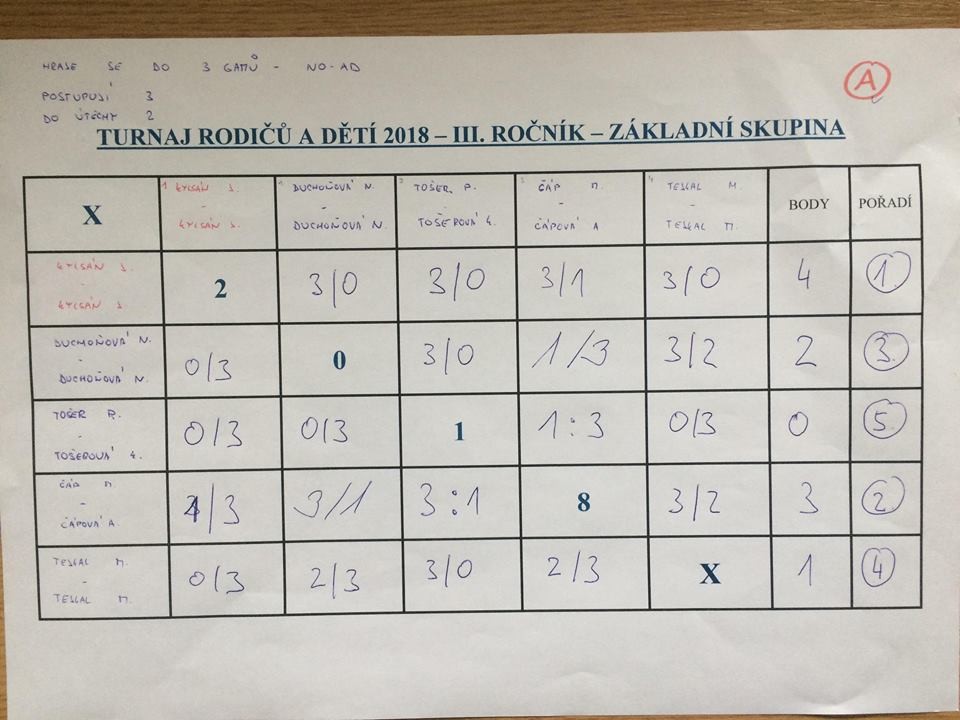 HRAJE SE DO 3 GAMŮ - NO-AD
POSTUPUJÍ 3
DO ÚTĚCHY 2
A
TURNAJ RODIČŮ A DĚTÍ 2018 – III. ROČNÍK – ZÁKLADNÍ SKUPINA
X DUCHOŇOVÁ N. - DUCHOŇOVÁ N. TOŠER P. - TOŠEROVÁ ČÁP M. - ČÁPOVÁ A TESKAL M. - TESKAL M. BODY POŘADÍ
2 3/0 3/0 3/1 3/0 4 1.
DUCHOŇOVÁ N. - DUCHOŇOVÁ N. 0/3 0 3/0 1/3 3/2 2 3.
TOŠER P. - TOŠEROVÁ 0/3 0/3 1 1:3 0/3 0 5.
ČÁP M - ČÁPOVÁ A. 1/3 3/1 3:1 8 3/2 3 2.
TESKAL M. - TESKAL M. 0/3 2/3 3/0 2/3 X 1 4.